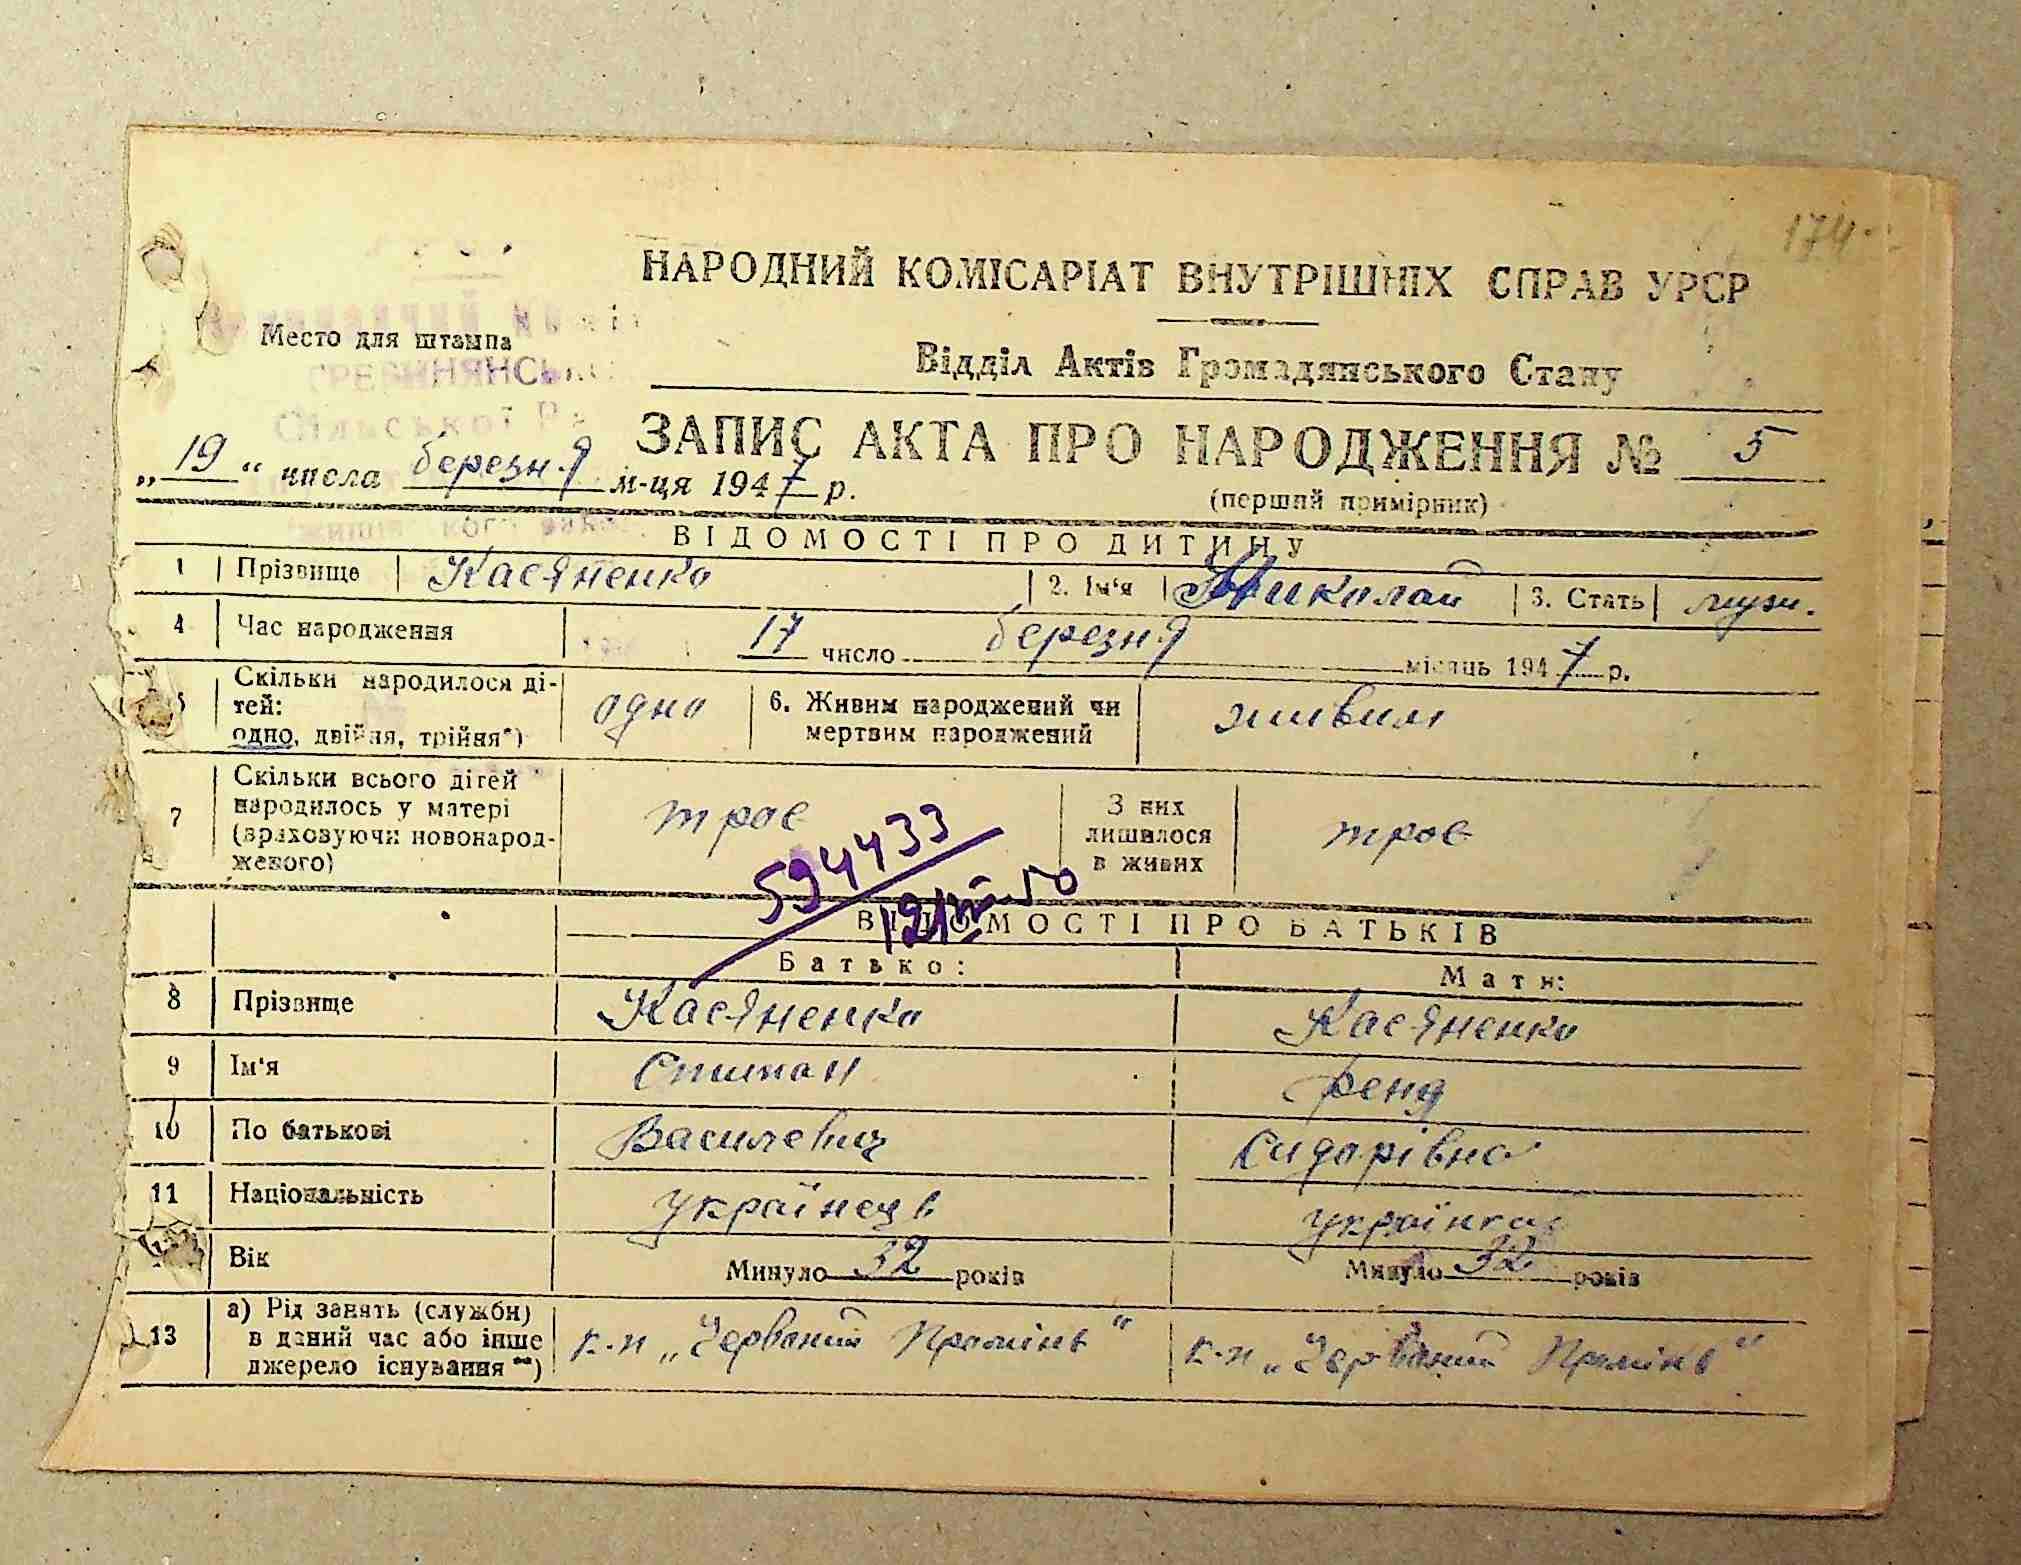 174
НАРОДНИЙ КОМІСАРІАТ ВНУТРІШНІХ СПРАВ УРСР
Место для штампа
Відділ Актів Громадянського Стану
ГРЕБИНЯНСЬК
Сільської Ра
ЗАПИС АКТА ПРО НАРОДЖЕННЯ № 5
„19“ числа березня м-ця 1947 р.
(перший примірник)
ВІДОМОСТІ ПРО ДИТИНУ
1 Прізвище Касяненко 2. Ім'я Николай 3. Стать муж.
4 Час народження 17 число березня місяць 1947 р.
5 Скільки народилося ді-
тей:
одно, двійня, трійня*) одно 6. Живим народжений чи
мертвим народжений живим
7 Скільки всього дітей
народилось у матері
(враховуючи новонарод-
женого) троє З них
лишилося
в живих троє
594433
ВІДОМОСТІ ПРО БАТЬКІВ
Батько: Мати:
8 Прізвище Касяненко Касяненко
9 Ім'я Степан Феня
10 По батькові Василевич Сидорівна
11 Національність українець українка
Вік Минуло 32 років Минуло 32 років
13 а) Рід занять (служби)
в даний час або інше
джерело існування **) к-п „Червоний Промінь" к-п „Червоний Промінь"